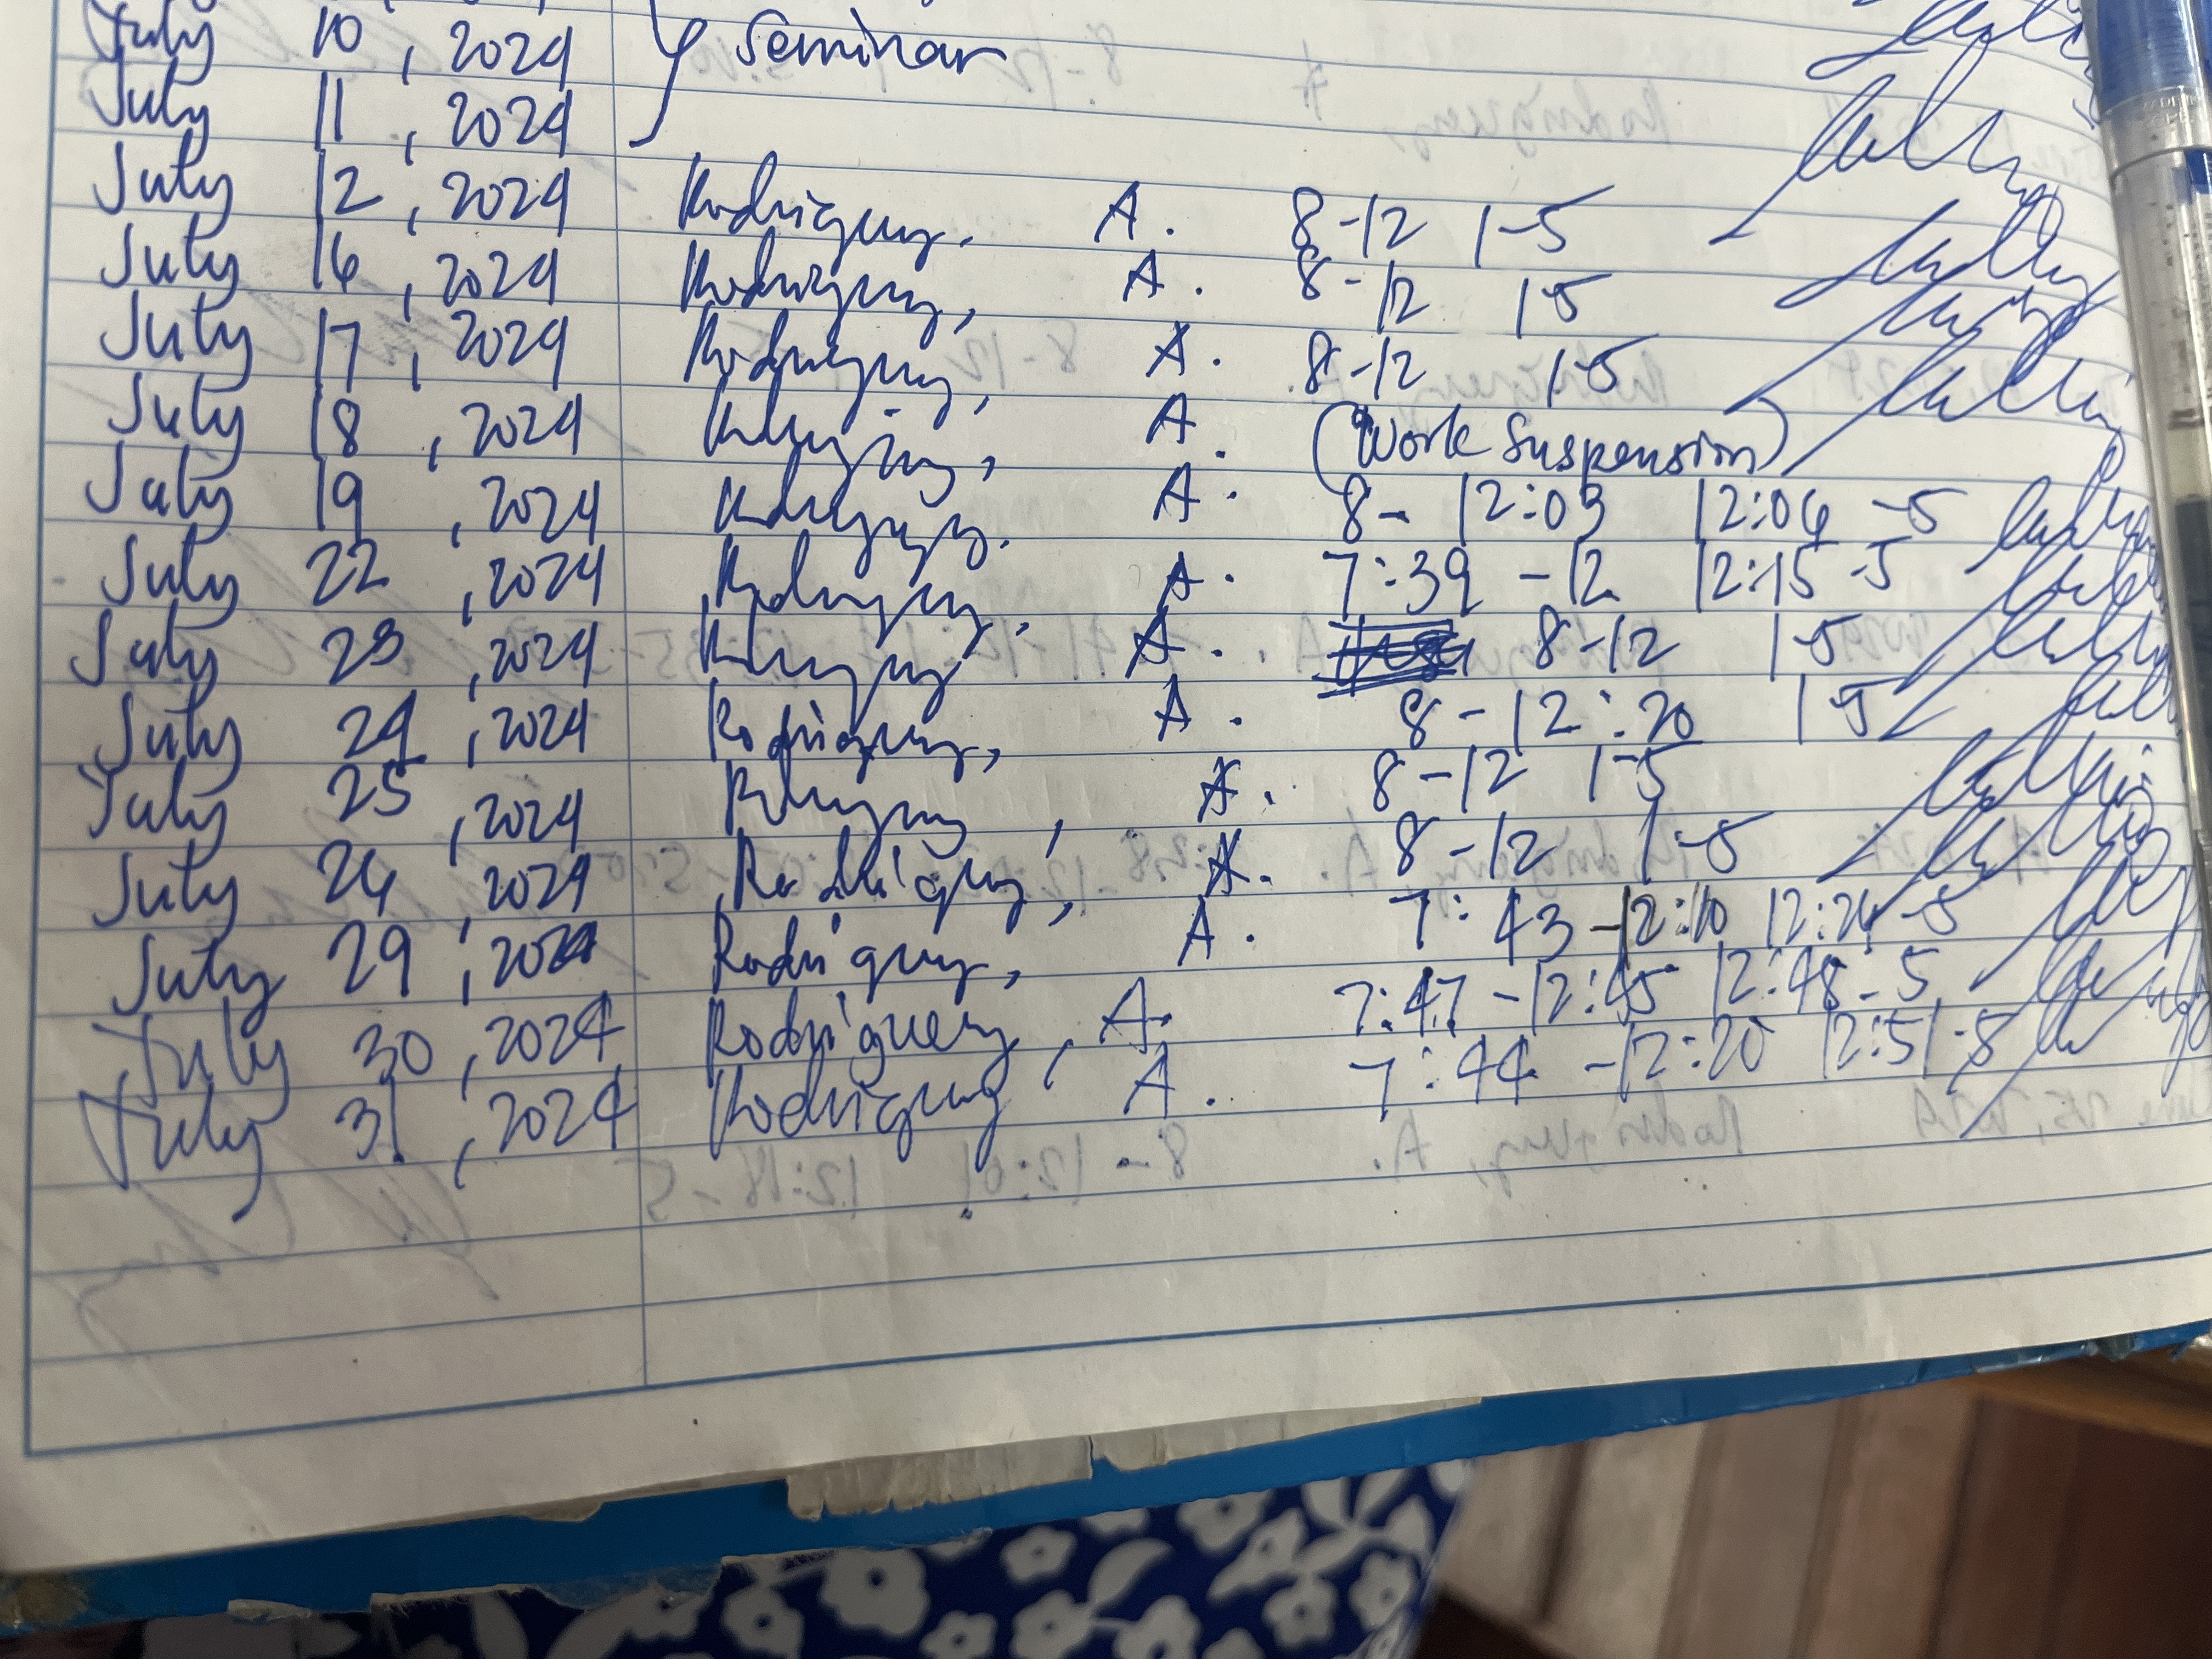 July 10, 2024 } Seminar
July 11, 2024
July 12, 2024 Rodriguez, A. 8-12 1-5
July 16, 2024 Rodriguez, A. 8-12 1-5
July 17, 2024 Rodriguez, A. 8-12 1-5
July 18, 2024 Rodriguez, A. (Work Suspension)
July 19, 2024 Rodriguez, A. 8- 12:03 12:06 -5
July 22, 2024 Rodriguez, A. 7:39 -12 12:15-5
July 23, 2024 Rodriguez, A. 8-12 1-5
July 24, 2024 Rodriguez, A. 8-12:20 1-5
July 25, 2024 Rodriguez, A. 8-12 1-5
July 26, 2024 Rodriguez, A. 8-12 1-5
July 29, 2024 Rodriguez, A. 7:43 -12:10 12:26 -5
July 30, 2024 Rodriguez, A. 7:47 -12:45 12:48-5
July 31, 2024 Rodriguez A. 7:44 -12:20 12:51-5